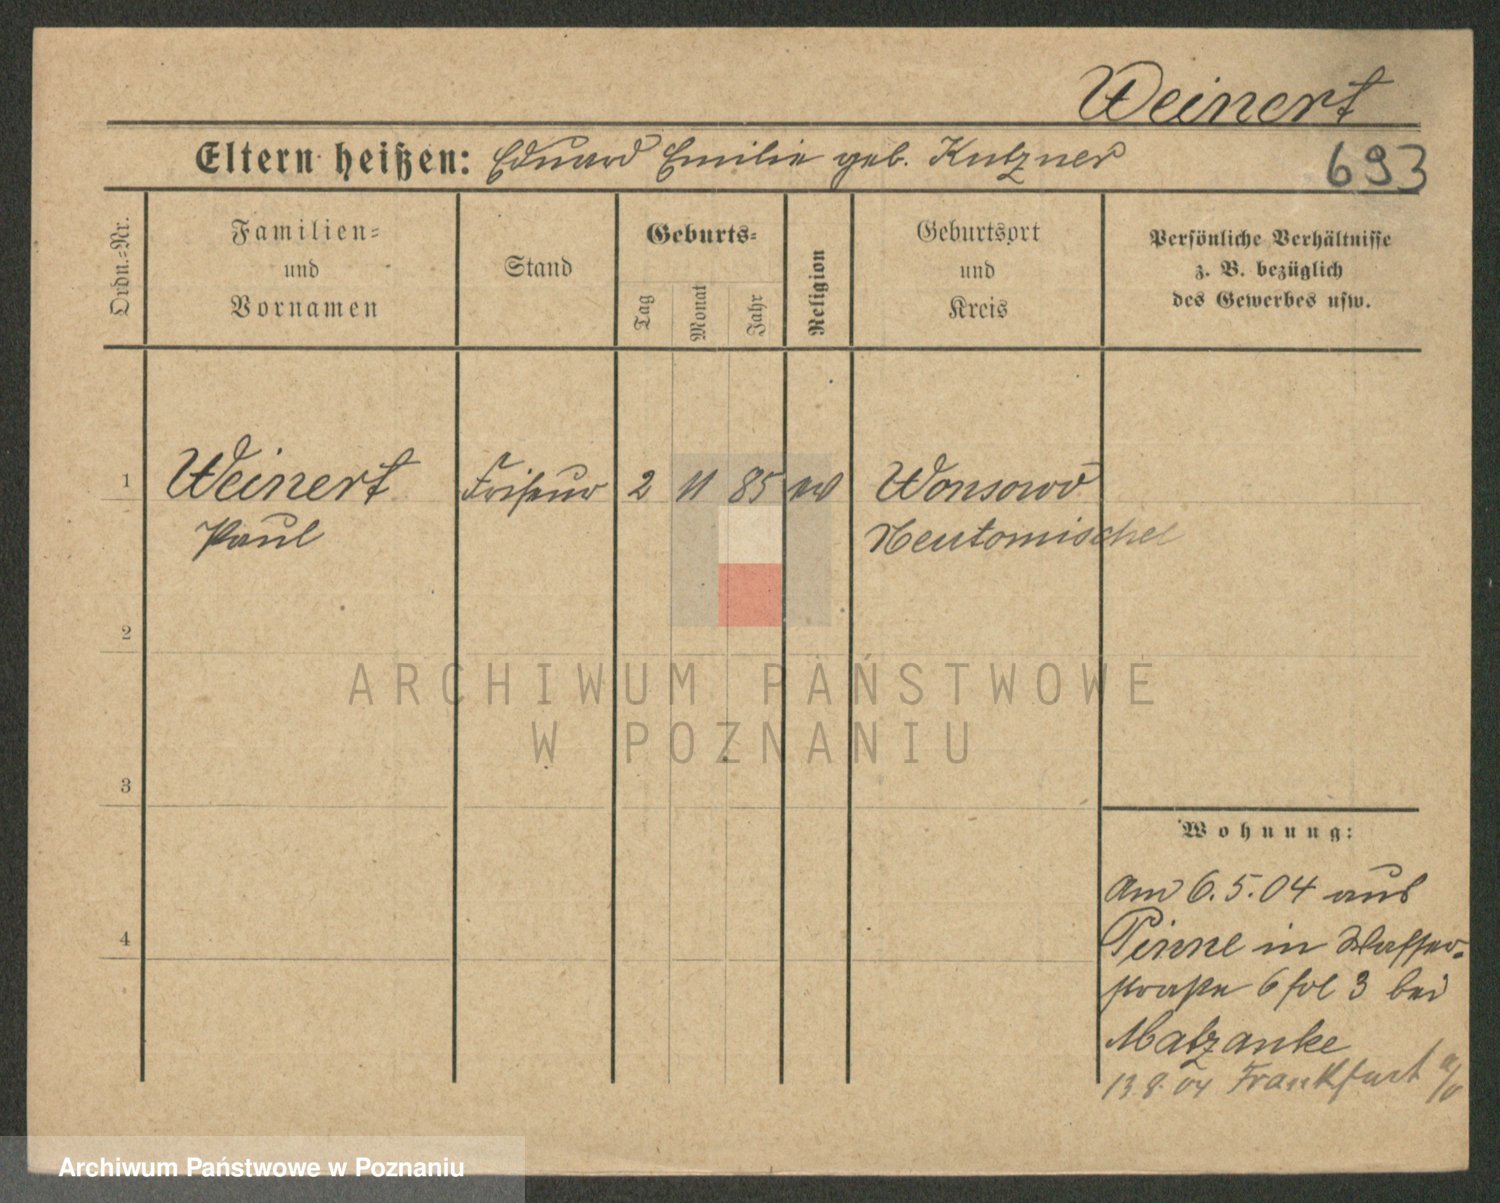 Weinert
Eltern heißen: Eduard Emilie geb. Kutzner
693
Ordn.-Nr.
Familien-
und
Vornamen
Stand
Geburts-
Tag
Monat
Jahr
Religion
Geburtsort
und
Kreis
Persönliche Verhältnisse
z. B. bezüglich
des Gewerbes usw.
1 Weinert Friseur 2 11 85 ev Wonsowo
Paul Neutomischel
2
3
4
ARCHIWUM PAŃSTWOWE
W POZNANIU
Wohnung:
Am 6.5.04 aus
Pinne in Wasser-
straße 6 fol 3 bei
Matzanke
13.8.04 Frankfurt a/O
Archiwum Państwowe w Poznaniu